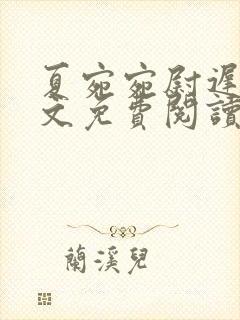 夏宛宛尉遲
文免費閱讀
蘭溪兒